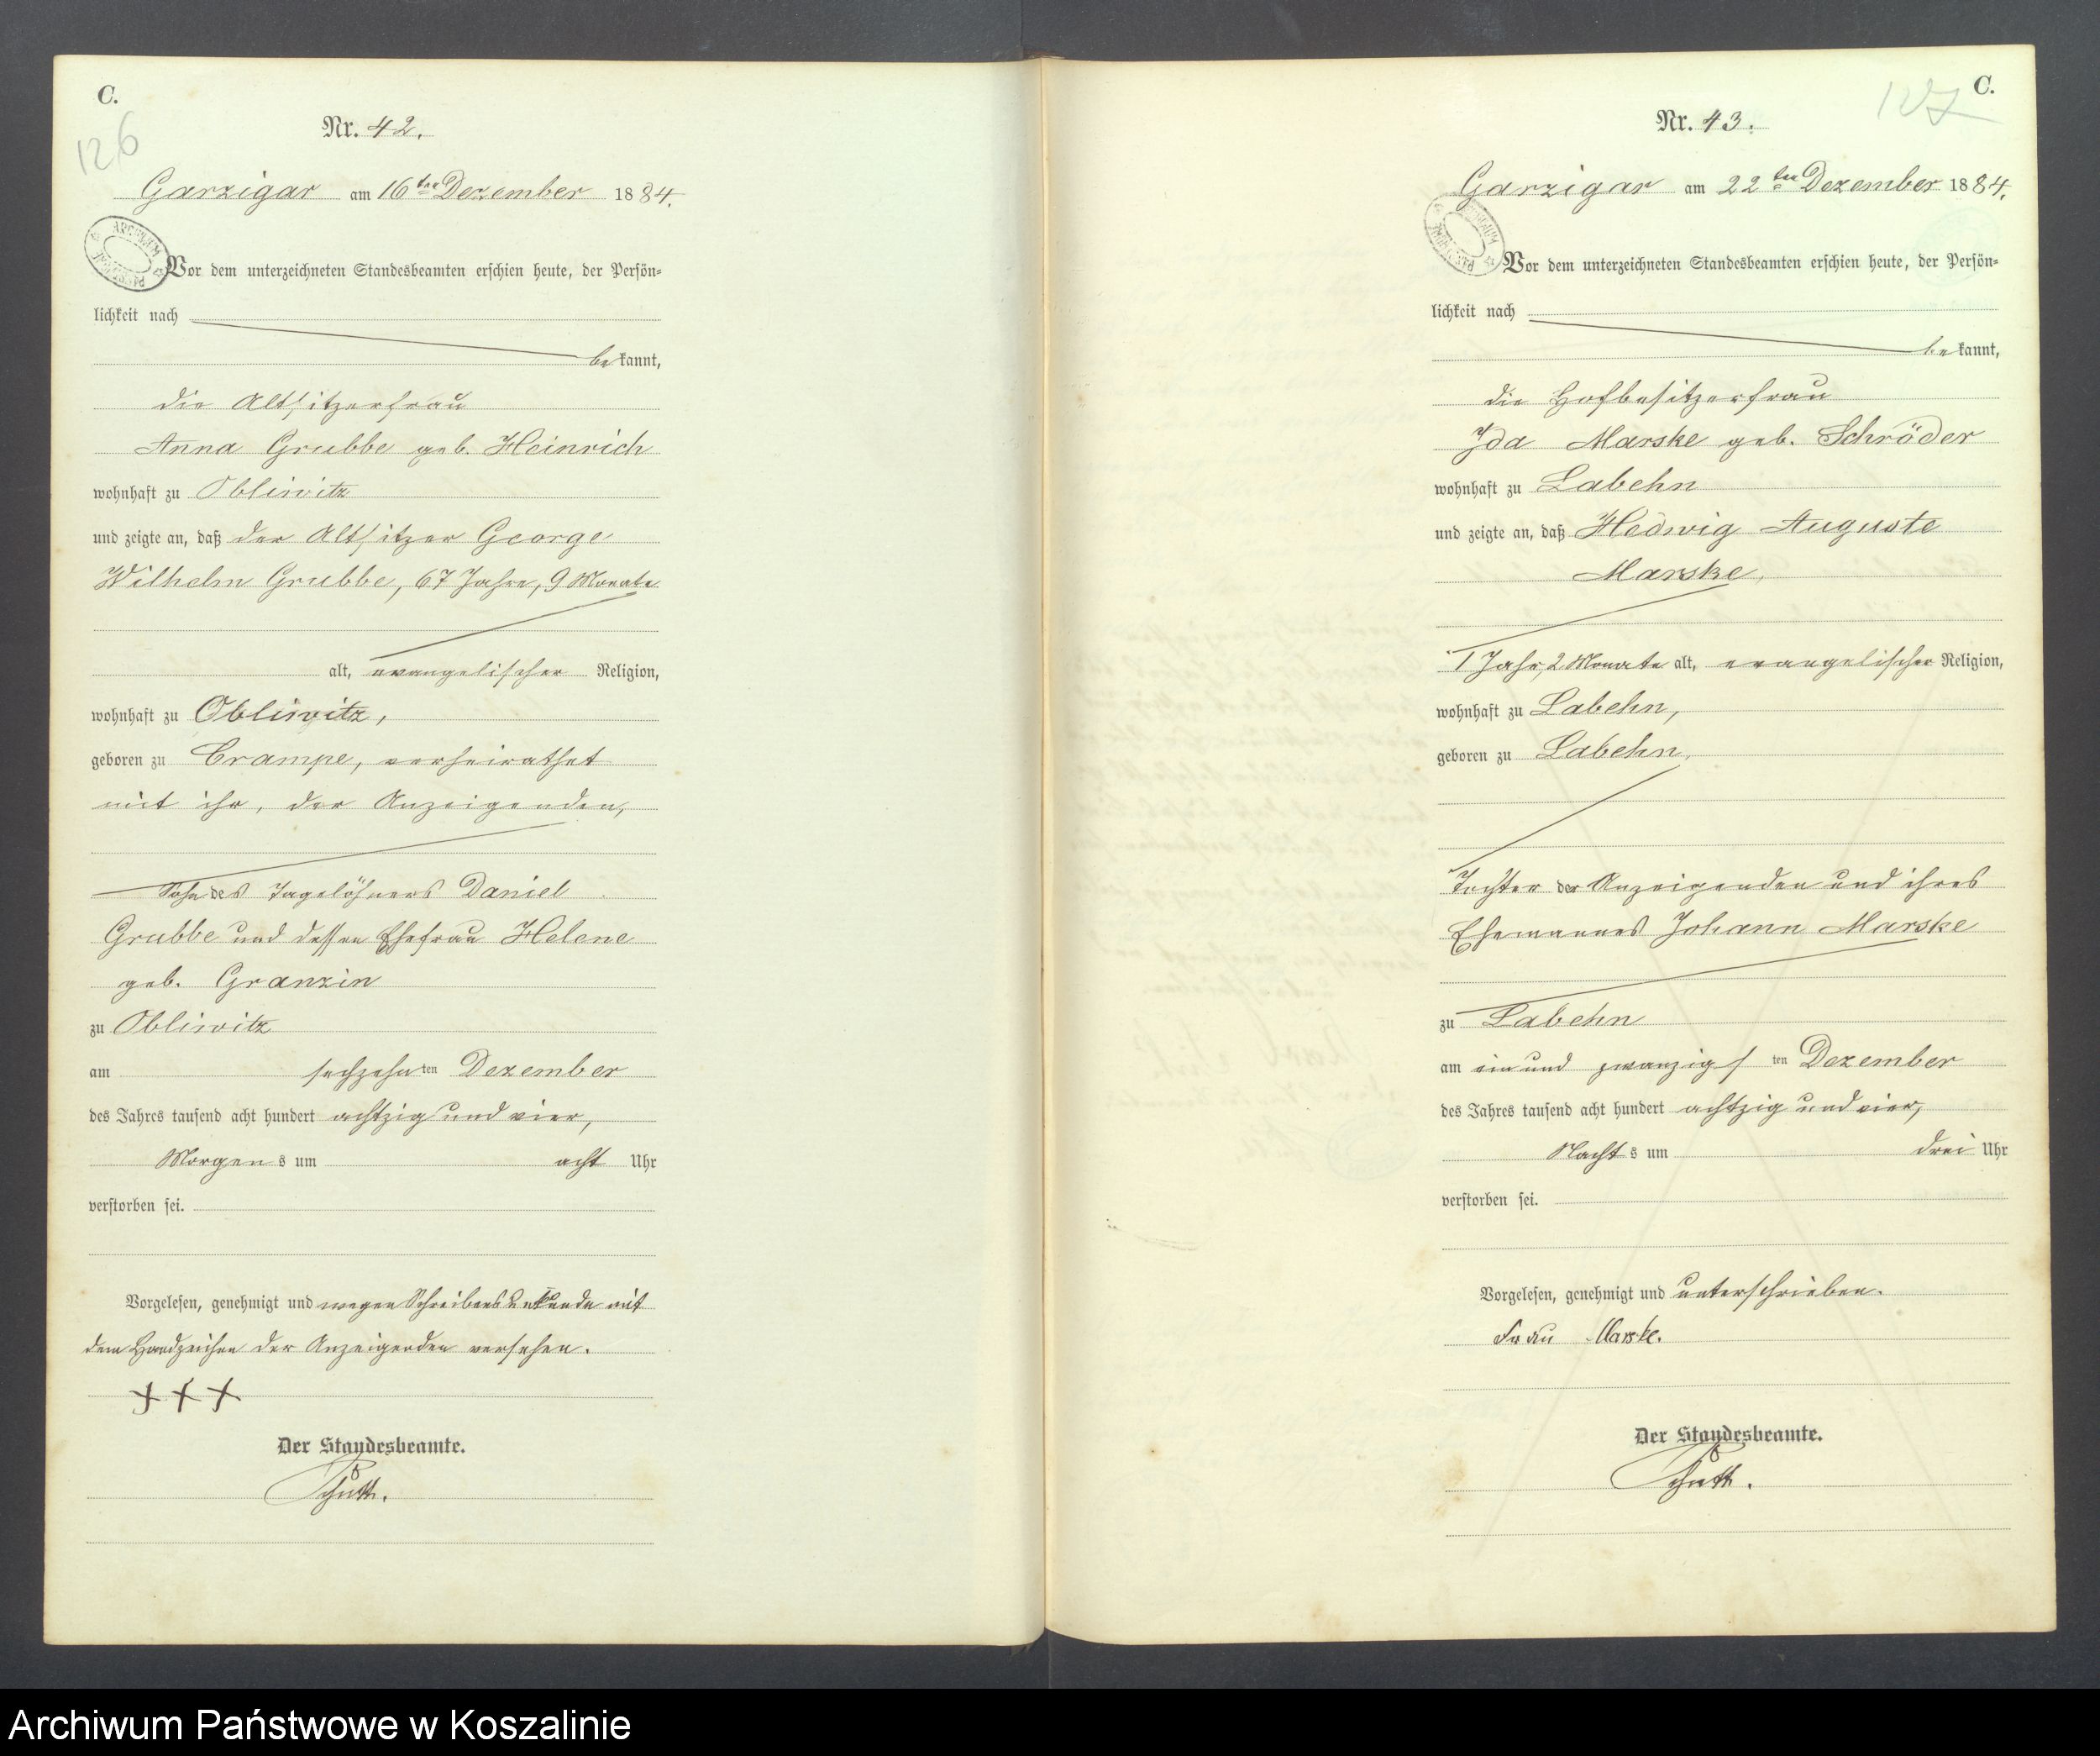 C.
126
Nr. 42.
Garzigar am 16ten Dezember 1884.
Vor dem unterzeichneten Standesbeamten erschien heute, der Persön-
lichkeit nach
bekannt,
die Altsitzerfrau
Anna Grubbe geb. Heinrich
wohnhaft zu Obliwitz
und zeigte an, daß der Altsitzer George
Wilhelm Grubbe, 67 Jahre, 9 Monate
alt, evangelischer Religion,
wohnhaft zu Obliwitz,
geboren zu Crampe, verheirathet
mit ihr, der Anzeigenden,
Sohn des Tagelöhners Daniel
Grubbe und dessen Ehefrau Helene
geb. Granzin
zu Obliwitz
am sechzehnten Dezember
des Jahres tausend acht hundert achtzig und vier,
Morgens um acht Uhr
verstorben sei.
Vorgelesen, genehmigt und wegen Schreibensunkunde mit
dem Handzeichen der Anzeigenden versehen.
+++
Der Standesbeamte.
C.
127
Nr. 43.
Garzigar am 22ten Dezember 1884.
Vor dem unterzeichneten Standesbeamten erschien heute, der Persön-
lichkeit nach
bekannt,
die Hofbesitzerfrau
Ida Marske geb. Schröder
wohnhaft zu Labehn
und zeigte an, daß Hedwig Auguste
Marske,
1 Jahr, 2 Monate alt, evangelischer Religion,
wohnhaft zu Labehn,
geboren zu Labehn,
Tochter der Anzeigenden und ihres
Ehemannes Johann Marske
zu Labehn
am ein und zwanzigsten Dezember
des Jahres tausend acht hundert achtzig und vier,
Nachts um drei Uhr
verstorben sei.
Vorgelesen, genehmigt und unterschrieben.
Frau Marske.
Der Standesbeamte.
Archiwum Państwowe w Koszalinie